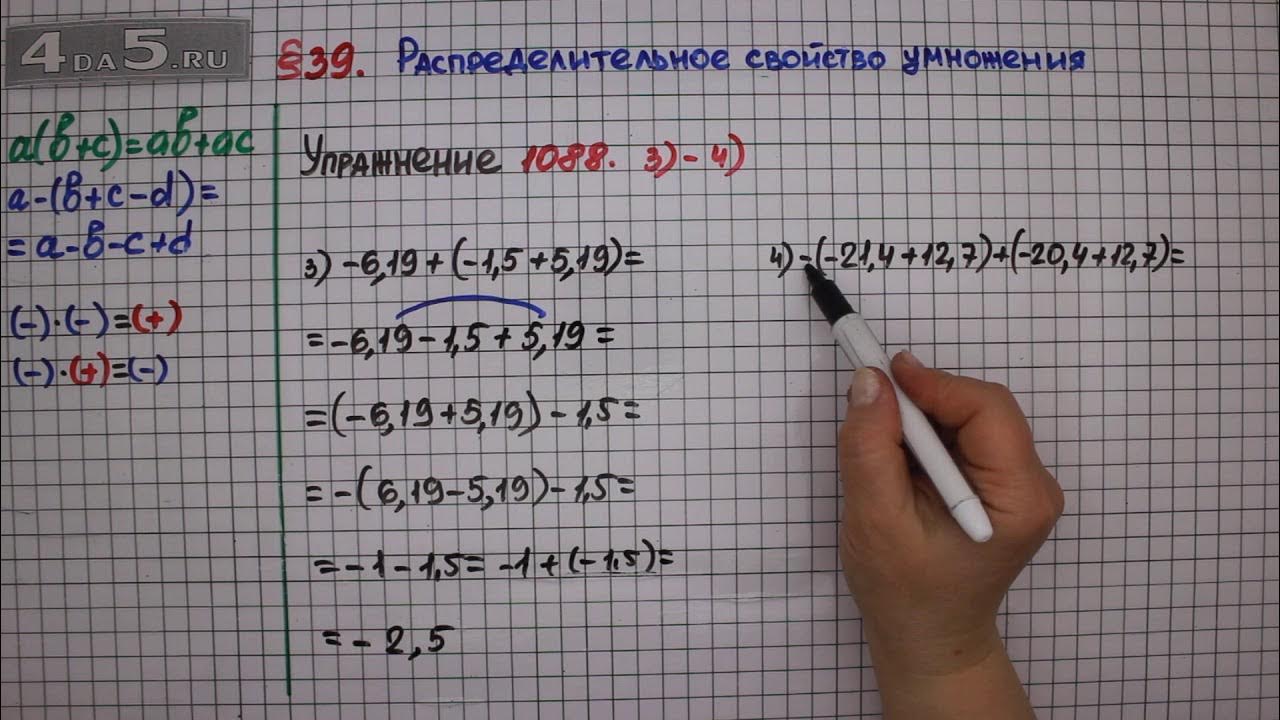 4DA5.RU
§39. Распределительное свойство умножения
a(b+c)=ab+ac
a-(b+c-d)=
=a-b-c+d
(-)·(-)=(+)
(-)·(+)=(-)
Упражнение 1088. 3)-4)
3) -6,19+(-1,5+5,19)=
=-6,19-1,5+5,19=
=(-6,19+5,19)-1,5=
=-(6,19-5,19)-1,5=
=-1-1,5=-1+(-1,5)=
=-2,5
4) -(-21,4+12,7)+(-20,4+12,7)=